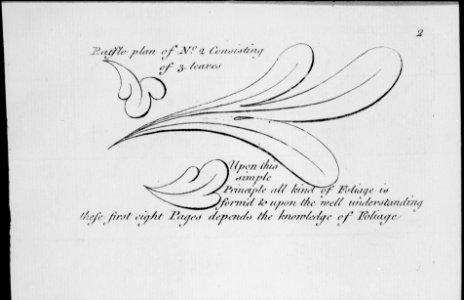 2
Raffle plan of No. 2 Consisting
of 3 leaves
Upon this
simple
Principle all kind of Foliage is
form'd & upon the well understanding
these first eight Pages depends the knowledge of Foliage